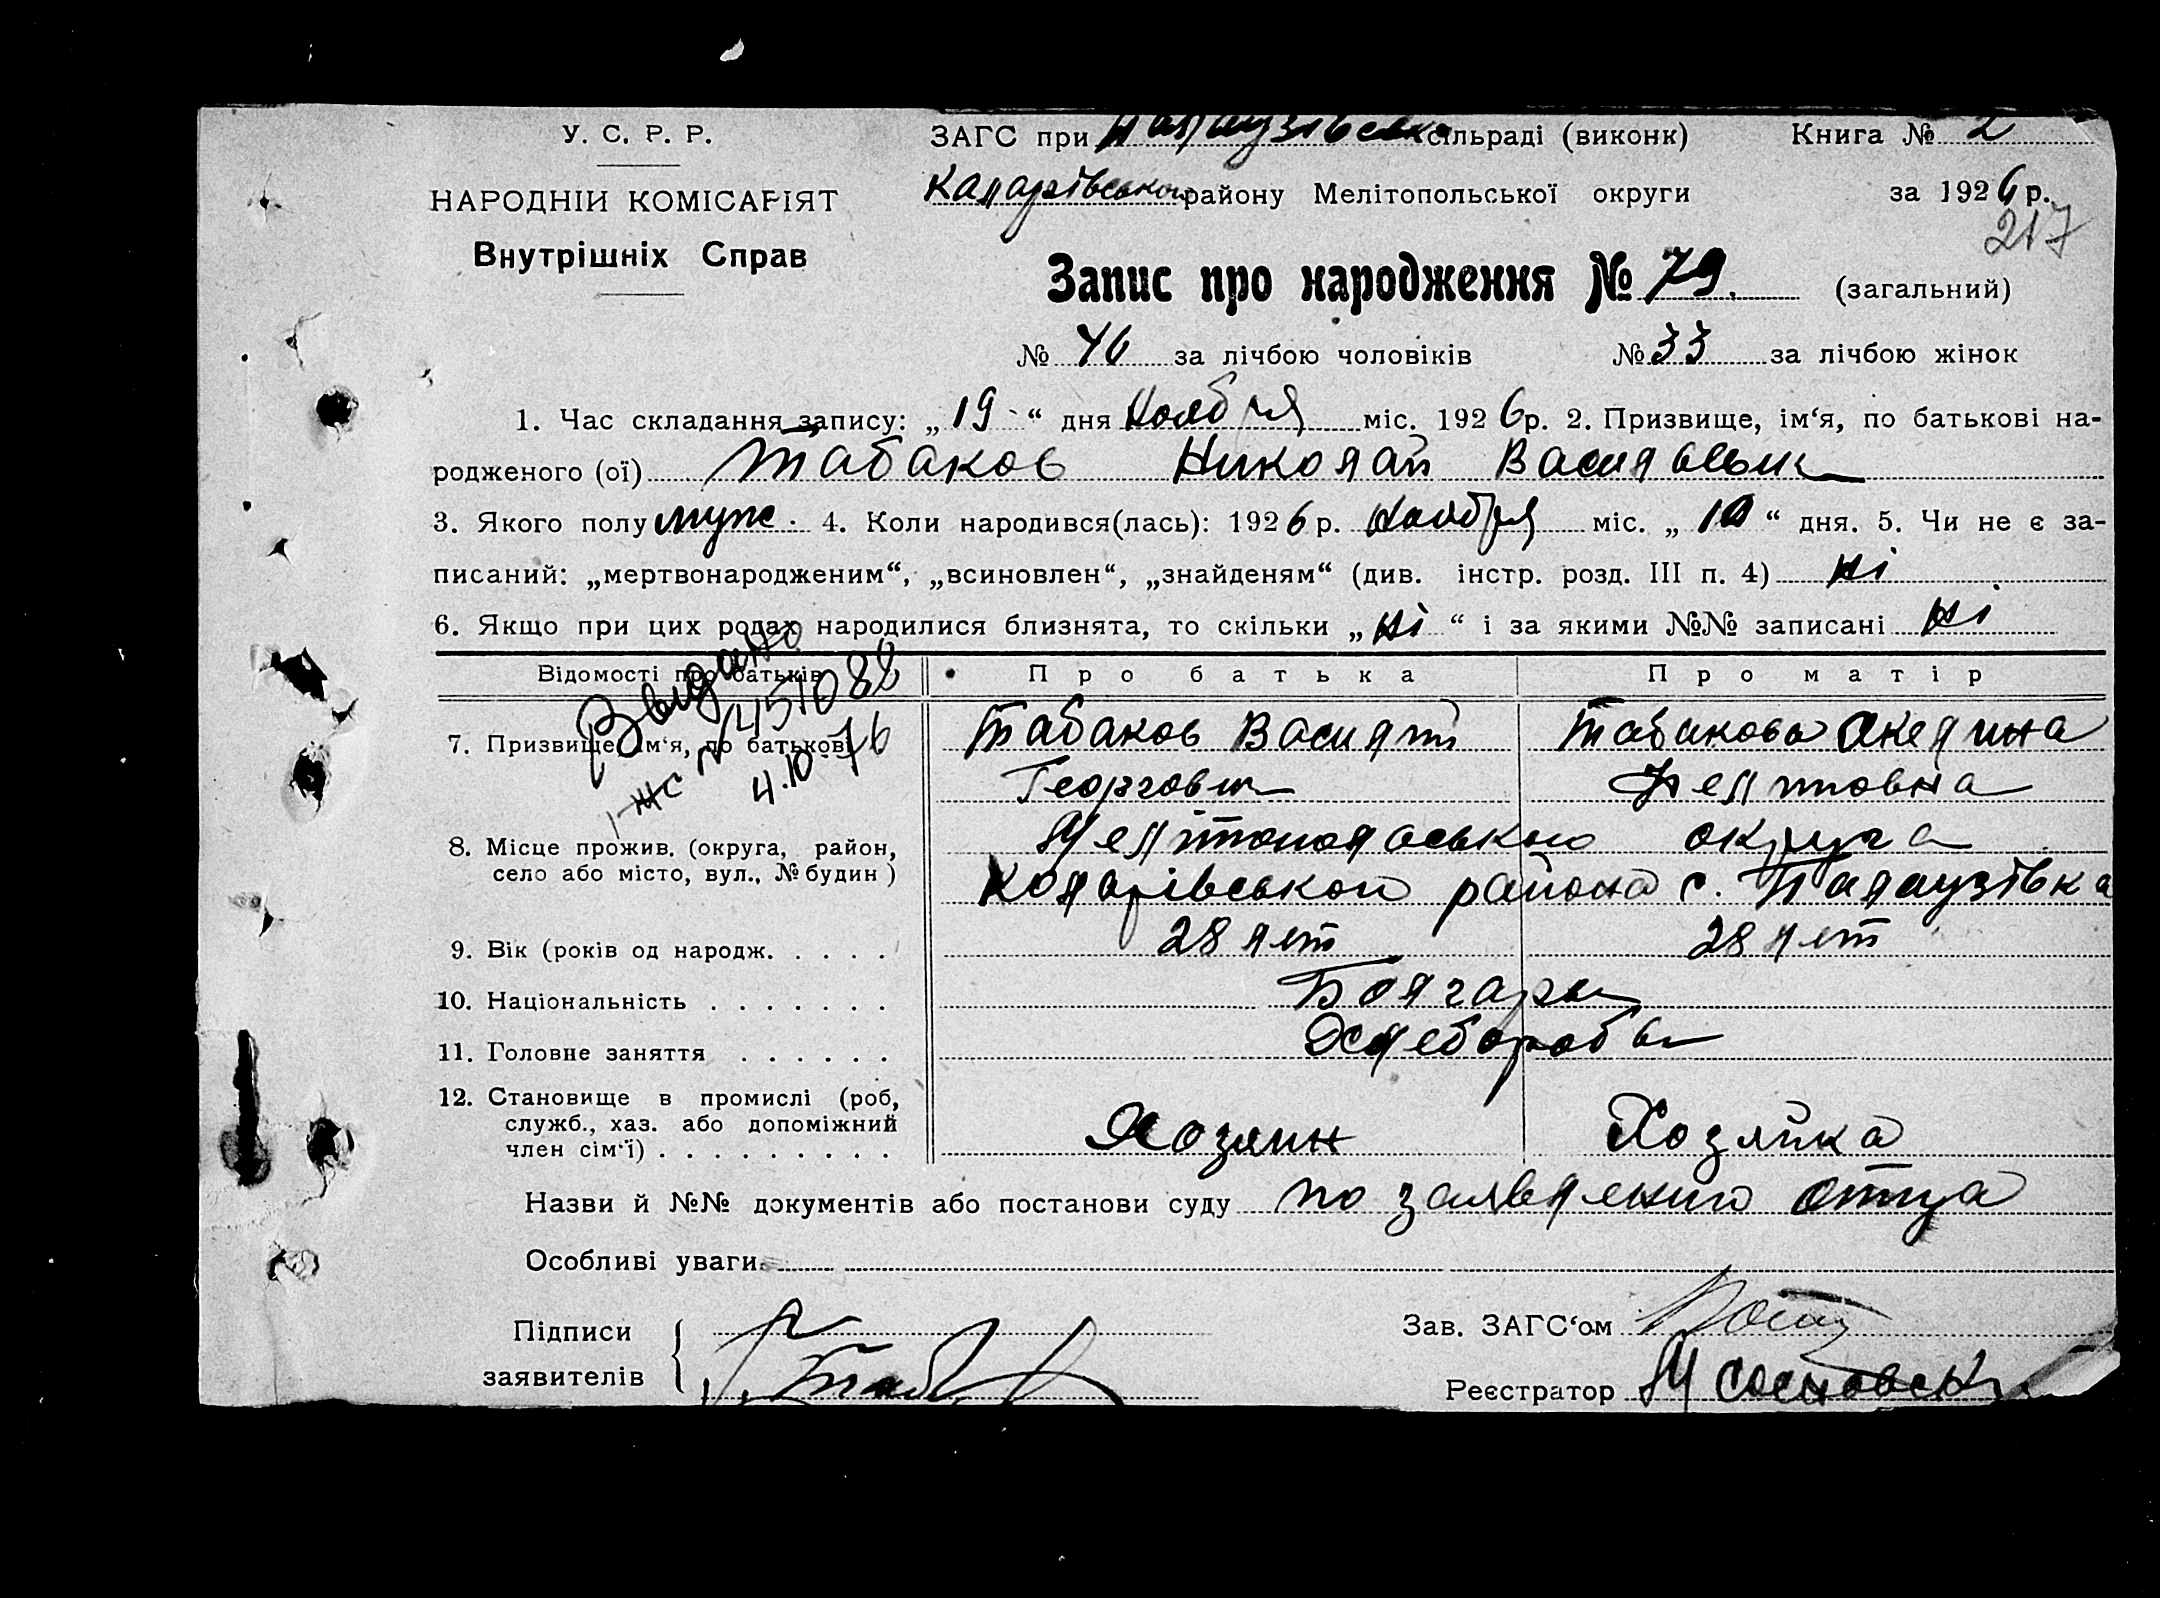 У. С. Р. Р.
НАРОДНІЙ КОМІСАРІЯТ
Внутрішніх Справ
ЗАГС при Палаузівська сільраді (виконк) Книга № 2
Коларівського району Мелітопольської округи за 1926 р.
217
Запис про народження № 79. (загальний)
№ 46 за лічбою чоловіків № 33 за лічбою жінок
1. Час складання запису: „19“ дня Ноября міс. 1926 р. 2. Призвище, ім‘я, по батькові на-
родженого (ої) Табаков Николай Васильевич
3. Якого полу муж. 4. Коли народився(лась): 1926 р. Ноября міс. „10“ дня. 5. Чи не є за-
писаний: „мертвонародженим“, „всиновлен“, „знайденям“ (див. інстр. розд. III п. 4) ні
6. Якщо при цих родах народилися близнята, то скільки „ні“ і за якими №№ записані ні
Відомості про батьків Про батька Про матір
Видано
ЖС № 451088
4.10.76
7. Призвище, ім‘я, по батькові Табаков Василий Табакова Акелина
Георгович
8. Місце прожив. (округа, район, Мелітопольською округа
село або місто, вул., № будин) Коларівськой района с. Палаузівка
9. Вік (років од народж. . . . . . 28 лет 28 лет
10. Національність . . . . . . . Болгары
11. Головне заняття . . . . . . Хлеборобы
12. Становище в промислі (роб,
служб., хаз. або допоміжний
член сім‘ї) . . . . . . . . . Хозяин Хозяйка
Назви й №№ документів або постанови суду по заявлению отца
Особливі уваги
Підписи
заявителів
Зав. ЗАГС‘ом
Реєстратор М